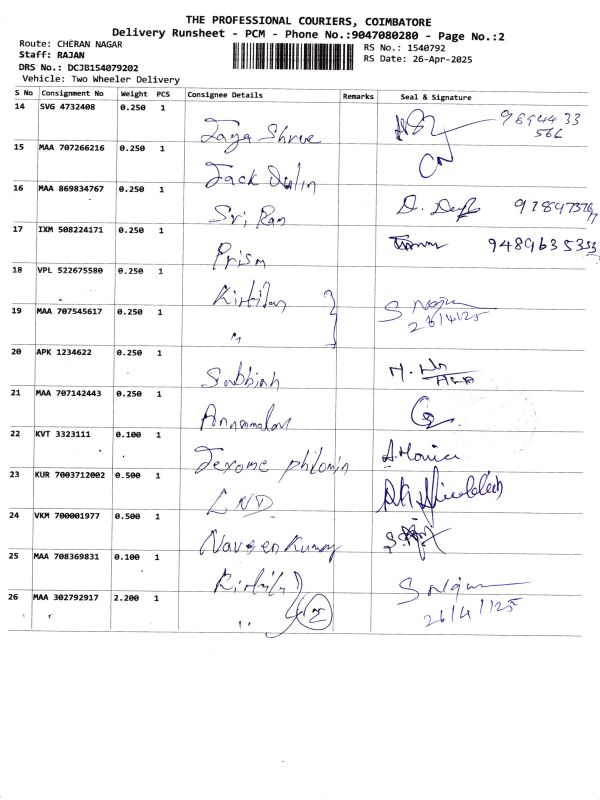 THE PROFESSIONAL COURIERS, COIMBATORE
Delivery Runsheet - PCM - Phone No.:9047080280 - Page No.:2
Route: CHERAN NAGAR
Staff: RAJAN
DRS No.: DCJB154079202
Vehicle: Two Wheeler Delivery
RS No.: 1540792
RS Date: 26-Apr-2025
S No Consignment No Weight PCS Consignee Details Remarks Seal & Signature
14 SVG 4732408 0.250 1 Jaya Shree
15 MAA 707266216 0.250 1 Jack
16 MAA 869834767 0.250 1 Sri Ram
17 IXM 508224171 0.250 1 Prism 9489635353
18 VPL 522675580 0.250 1 Kirbilan
19 MAA 707545617 0.250 1 " S 26/4/25
20 APK 1234622 0.250 1 Subbiah
21 MAA 707142443 0.250 1 Annamalai
22 KVT 3323111 0.100 1 Jexome philomin A. Monica
23 KUR 7003712002 0.500 1 LND
24 VKM 700001977 0.500 1 Naveen Kumar
25 MAA 708369831 0.100 1
26 MAA 302792917 2.200 1 " 26/4/25